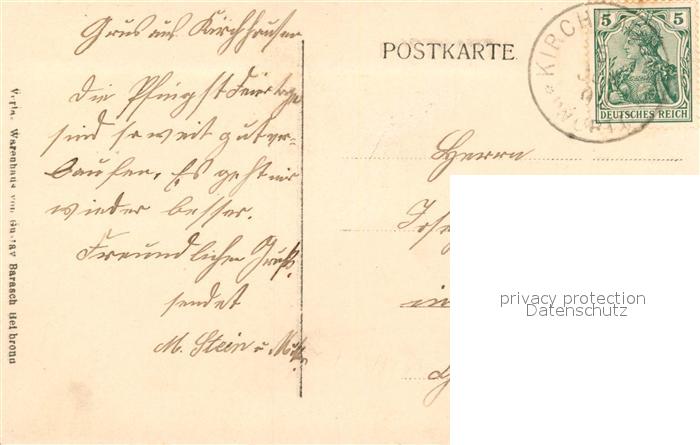 Grus aus Kirchhausen
POSTKARTE
Die Pfingstfeiertage
sind soweit gut ver-
laufen. Es geht mir
wieder besser.
Freundlichen Gruß
sendet
M. Stein u.
Herrn
in
KIRCH
WÜRTT
5 5
DEUTSCHES REICH
Verla. Warenhaus von Gustav Barasch Heilbronn
privacy protection
Datenschutz